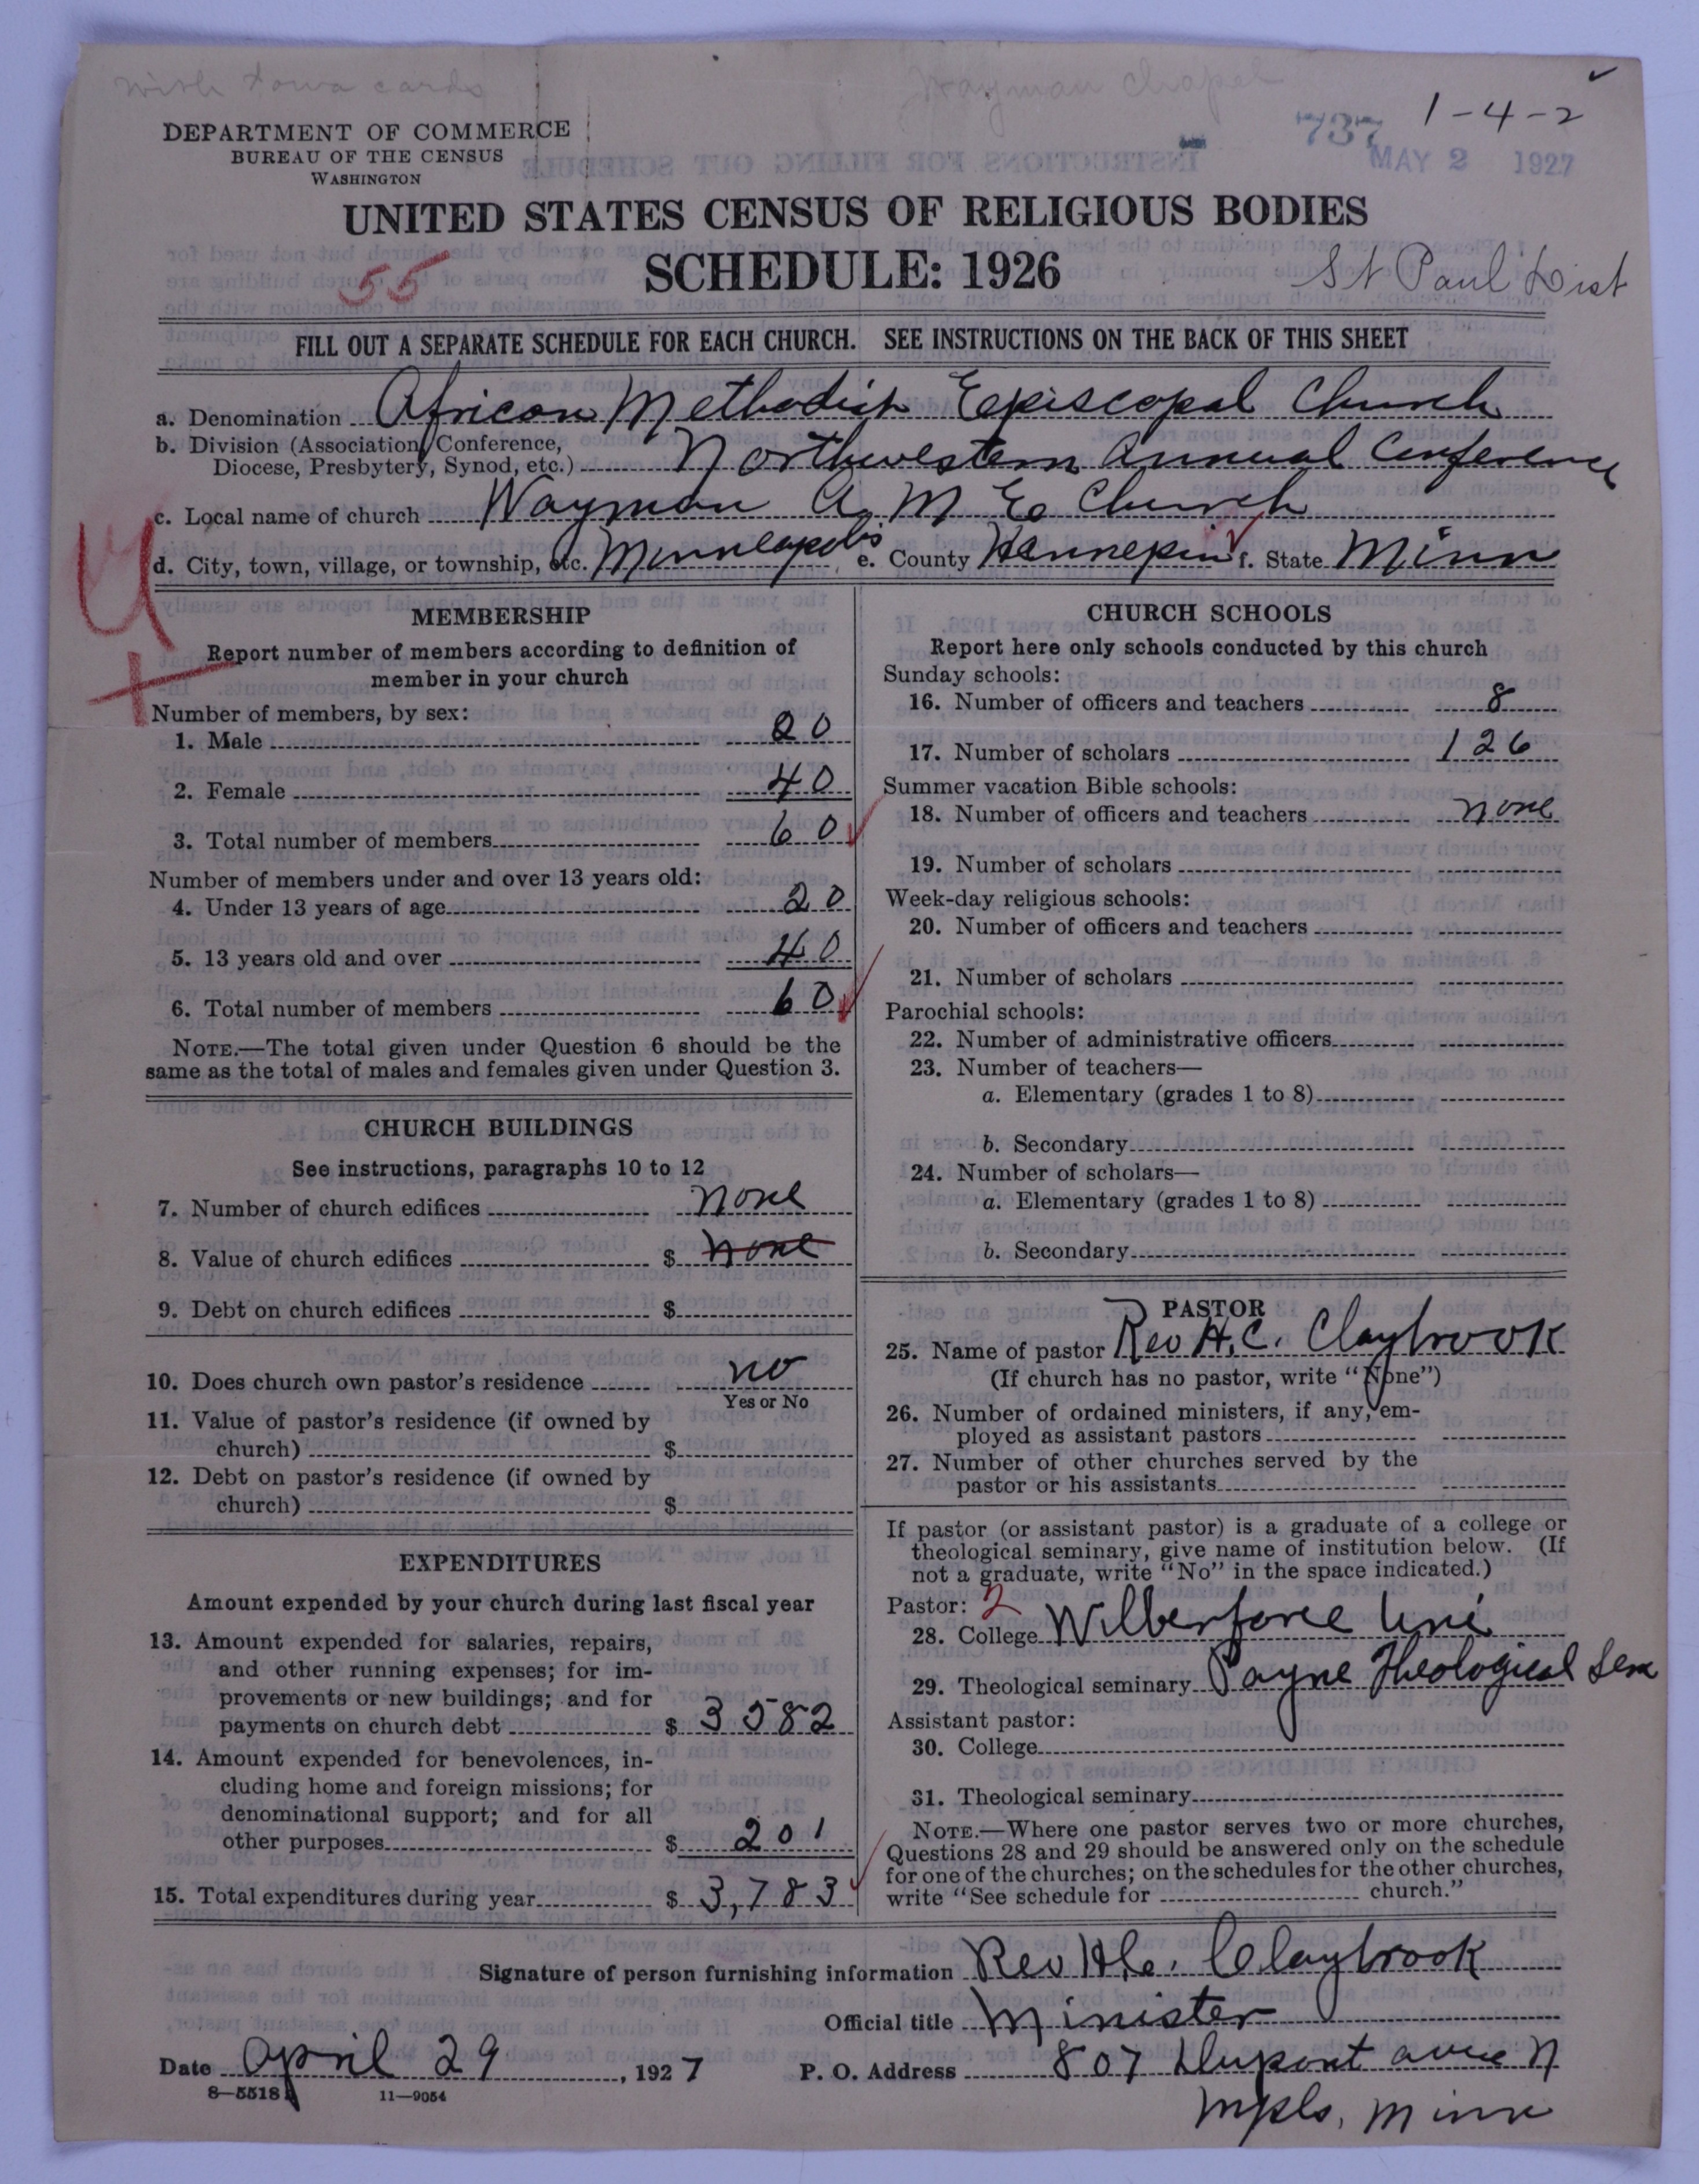 with Iowa cards
Wayman Chapel
1-4-2
737
MAY 2 1927
DEPARTMENT OF COMMERCE
BUREAU OF THE CENSUS
WASHINGTON
UNITED STATES CENSUS OF RELIGIOUS BODIES
SCHEDULE: 1926
55
St Paul Dist
FILL OUT A SEPARATE SCHEDULE FOR EACH CHURCH. SEE INSTRUCTIONS ON THE BACK OF THIS SHEET
a. Denomination African Methodist Episcopal Church
b. Division (Association, Conference,
Diocese, Presbytery, Synod, etc.) Northwestern Annual Conference
c. Local name of church Wayman A. M. E. Church
d. City, town, village, or township, etc. Minneapolis e. County Hennepin f. State Minn
MEMBERSHIP
Report number of members according to definition of
member in your church
Number of members, by sex:
1. Male 20
2. Female 40
3. Total number of members 60
Number of members under and over 13 years old:
4. Under 13 years of age 20
5. 13 years old and over 40
6. Total number of members 60
NOTE.—The total given under Question 6 should be the
same as the total of males and females given under Question 3.
CHURCH BUILDINGS
See instructions, paragraphs 10 to 12
7. Number of church edifices none
8. Value of church edifices $ none
9. Debt on church edifices $
10. Does church own pastor's residence no
Yes or No
11. Value of pastor's residence (if owned by
church) $
12. Debt on pastor's residence (if owned by
church) $
EXPENDITURES
Amount expended by your church during last fiscal year
13. Amount expended for salaries, repairs,
and other running expenses; for im-
provements or new buildings; and for
payments on church debt $ 3582
14. Amount expended for benevolences, in-
cluding home and foreign missions; for
denominational support; and for all
other purposes $ 201
15. Total expenditures during year $ 3,783
CHURCH SCHOOLS
Report here only schools conducted by this church
Sunday schools:
16. Number of officers and teachers 8
17. Number of scholars 126
Summer vacation Bible schools:
18. Number of officers and teachers none
19. Number of scholars
Week-day religious schools:
20. Number of officers and teachers
21. Number of scholars
Parochial schools:
22. Number of administrative officers
23. Number of teachers—
a. Elementary (grades 1 to 8)
b. Secondary
24. Number of scholars—
a. Elementary (grades 1 to 8)
b. Secondary
PASTOR
25. Name of pastor Rev H. C. Claybrook
(If church has no pastor, write "None")
26. Number of ordained ministers, if any, em-
ployed as assistant pastors
27. Number of other churches served by the
pastor or his assistants
If pastor (or assistant pastor) is a graduate of a college or
theological seminary, give name of institution below. (If
not a graduate, write "No" in the space indicated.)
Pastor: 2
28. College Wilberforce Uni
29. Theological seminary Payne Theological Sem
Assistant pastor:
30. College
31. Theological seminary
NOTE.—Where one pastor serves two or more churches,
Questions 28 and 29 should be answered only on the schedule
for one of the churches; on the schedules for the other churches,
write "See schedule for church."
Signature of person furnishing information Rev H. C. Claybrook
Official title Minister
Date April 29, 1927 P. O. Address 807 Dupont ave N
8—5518 11—9054
Mpls, Minn